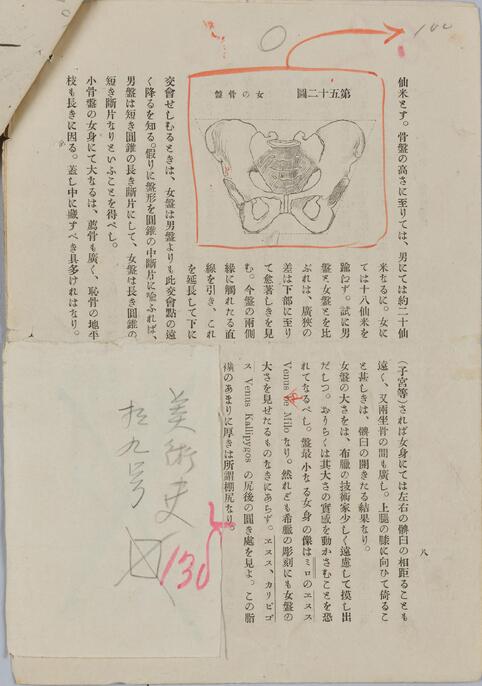 100
仙米とす。骨盤の高さに至りては、男にては約二十仙
米なるに。女に
ては十八仙米を
踰わず。試に男
盤と女盤とを比
ぶれは、廣狹の
差は下部に至り
て愈著しきを見
む。今盤の兩側
緣に觸れたる直
線を引き、これ
を延長して下に
第五十二圖
女の骨盤
交會せしむるときは、女盤は男盤よりも此交會點の遠
く降るを知る。假りに盤形を圓錐の中斷片に喩ふれば、
男盤は短き圓錐の長き斷片にして、女盤は長き圓錐の
短き斷片なりといふことを得べし。
小骨盤の女身にて大なるは、薦骨も廣く、恥骨の地平
枝も長きに因る。蓋し中に藏すべき具多ければなり。
(子宮等)されば女身にては左右の髀臼の相距ることも
遠く、又兩坐骨の間も廣し。上腿の膝に向ひて倚るこ
と甚しきは、髀臼の開きたる結果なり。
女盤の大さをは、希臘の技術家少しく遠慮して摸し出
だしつ。おりらくは其大さの實感を動かさむことを恐
れてなるべし。盤最小なる女身の像はミロのヱヌス
Venus de Milo なり。然れども希臘の彫刻にも女盤の
大さを見せたるものなきにあらず。ヱヌス、カリピゴ
ス Venus Kallipygos の尻後の圓き處を見よ。この脂
橫のあまりに厚きは所謂棚尻なり。
八
美術史
拾九号
130